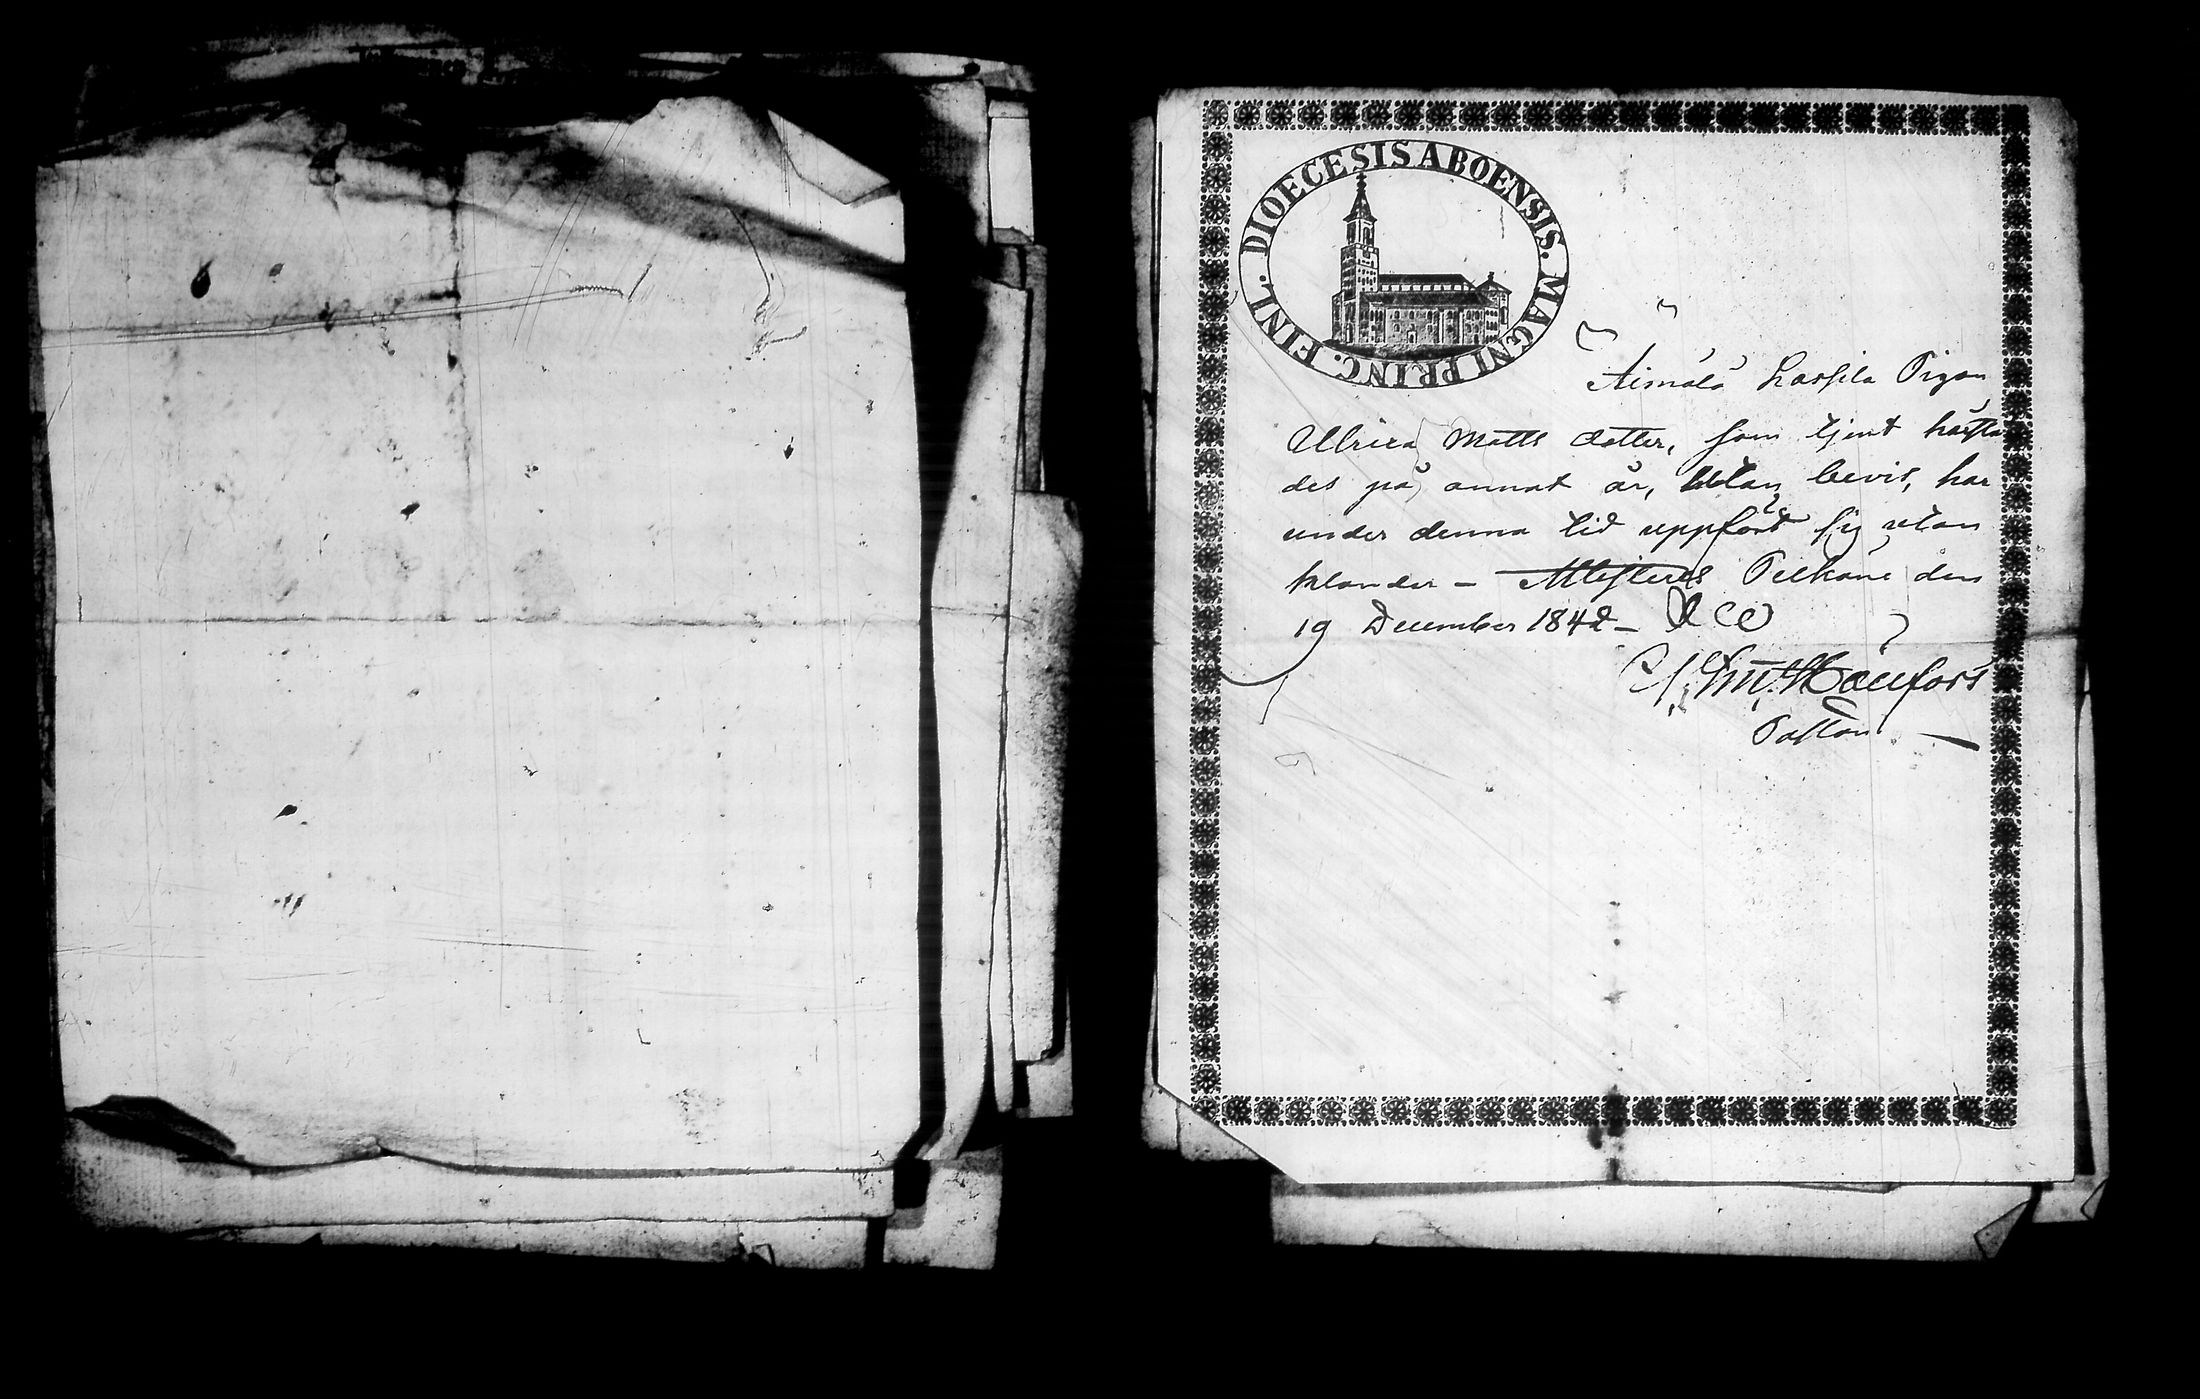 DIOECESIS ABOENSIS. MAGNI PRINC. FINL.
Äimälä Lassila Pigan
Ulrica Matts dotter, som tjent härstä
des på annat år, utan bevis, har
under denna tid uppfört sig utan
klander – Attesteras Pelkäne den
19 December 1842 –
Pastor